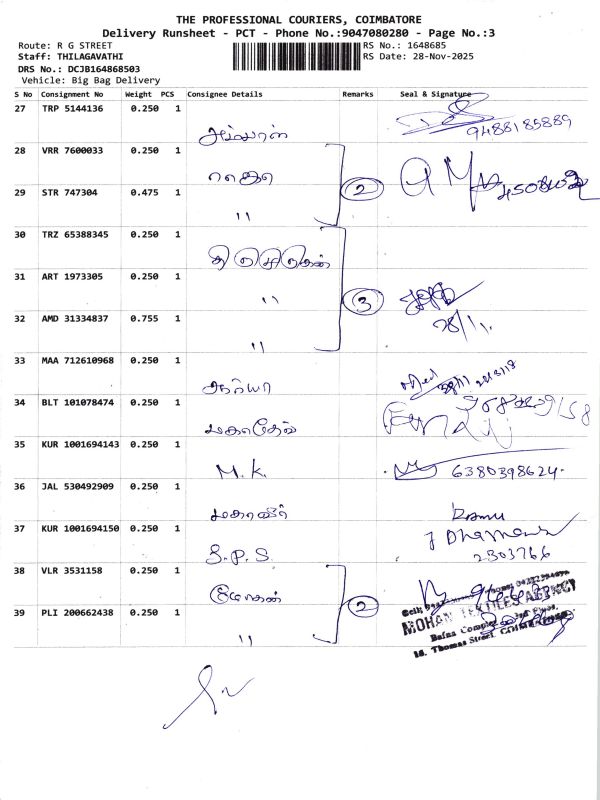 THE PROFESSIONAL COURIERS, COIMBATORE
Delivery Runsheet - PCT - Phone No.:9047080280 - Page No.:3
Route: R G STREET
RS No.: 1648685
Staff: THILAGAVATHI
RS Date: 28-Nov-2025
DRS No.: DCJB164868503
Vehicle: Big Bag Delivery
S No Consignment No Weight PCS Consignee Details Remarks Seal & Signature
27 TRP 5144136 0.250 1
9488185889
28 VRR 7600033 0.250 1
29 STR 747304 0.475 1 " 2
30 TRZ 65388345 0.250 1
31 ART 1973305 0.250 1 " 3
32 AMD 31334837 0.755 1 " 28/11.
33 MAA 712610968 0.250 1
34 BLT 101078474 0.250 1 மகாதேவ்
35 KUR 1001694143 0.250 1 M.K. 6380398624.
36 JAL 530492909 0.250 1 மகாவீர் Ramu
37 KUR 1001694150 0.250 1 S.P.S. 2303766
38 VLR 3531158 0.250 1 மோகன் 2
39 PLI 200662438 0.250 1 "
MOHAN TEXTILES AGENCY
Bafna Complex
16, Thomas Street,